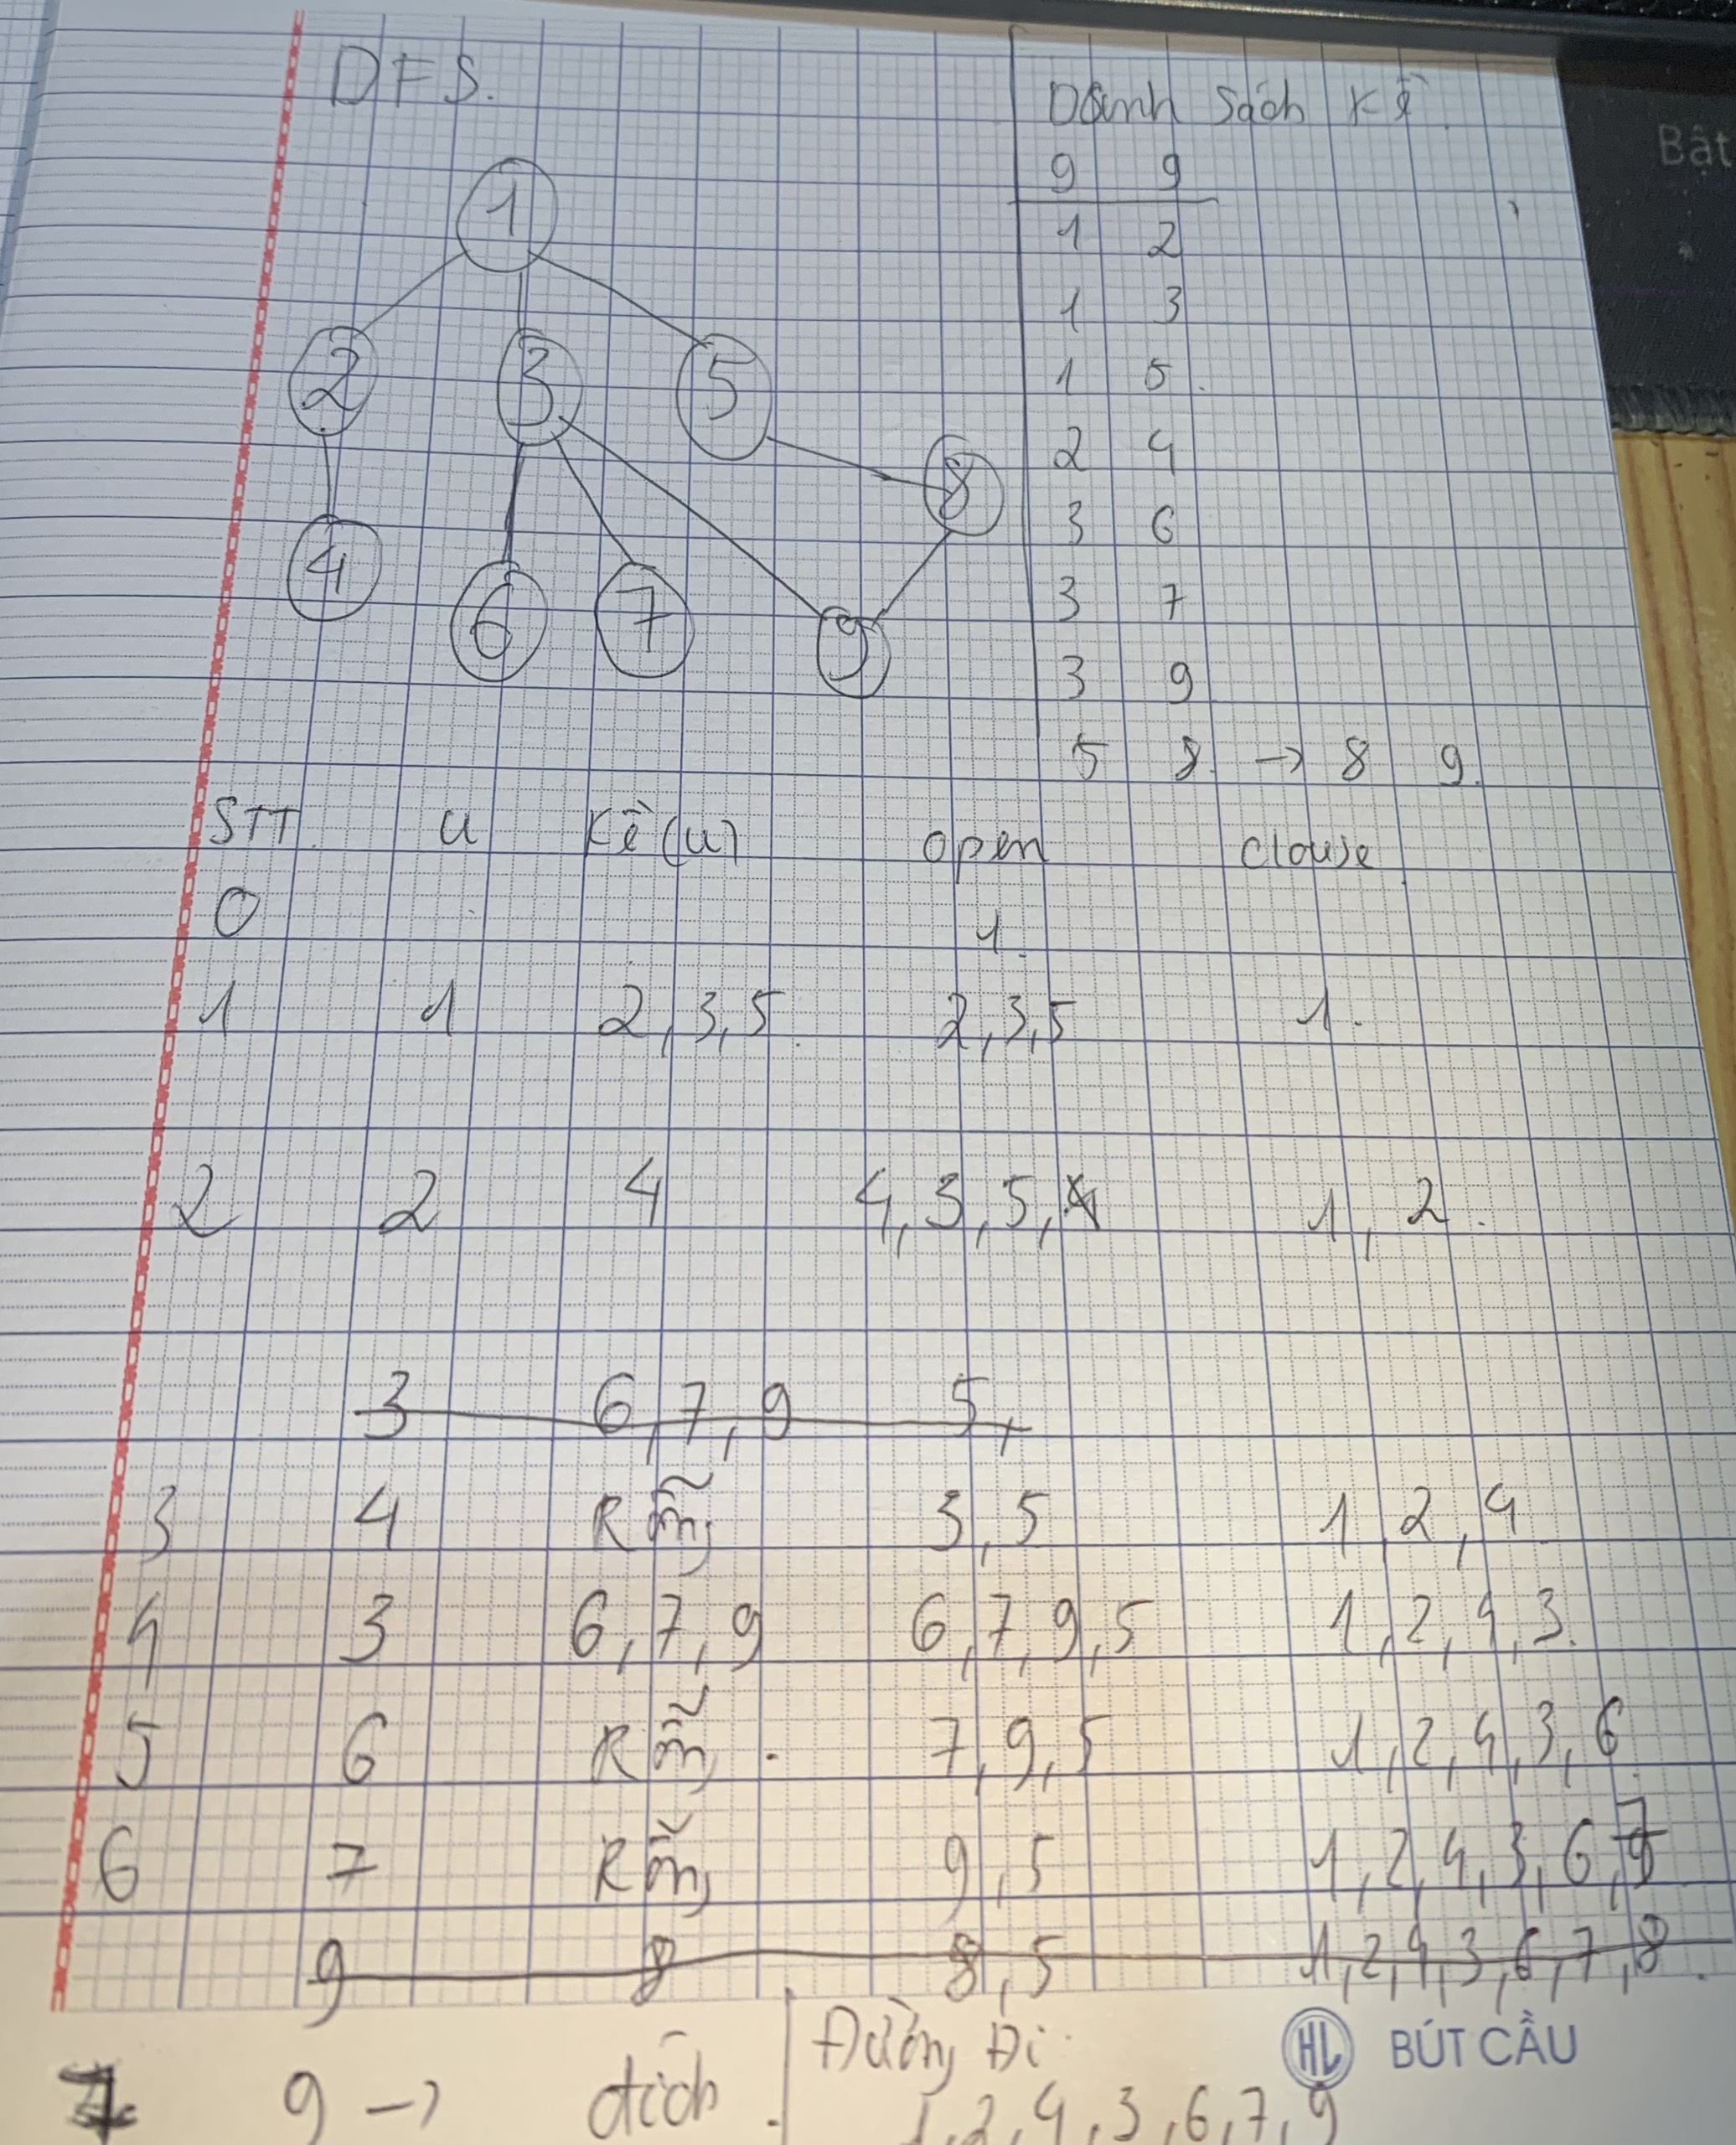 DFS.
1
2 3 5
8
4
6 7 9
Danh sách kề
9 9
1 2
1 3
1 5.
2 4
3 6
3 7
3 9
5 8. → 8 9.
STT. u Kề(u) open clouse
0 1.
1 1 2,3,5. 2,3,5 1.
2 2 4 4,3,5,4 1,2.
3 6,7,9 5,
3 4 Rỗng 3,5 1,2,4
4 3 6,7,9 6,7,9,5 1,2,4,3.
5 6 Rỗng. 7,9,5 1,2,4,3,6.
6 7 Rỗng 9,5 1,2,4,3,6,7
9 8 8,5 1,2,4,3,6,7,8.
7 9 → đích.
Đường Đi:
1,2,4,3,6,7,9
HL BÚT CẦU
Bật